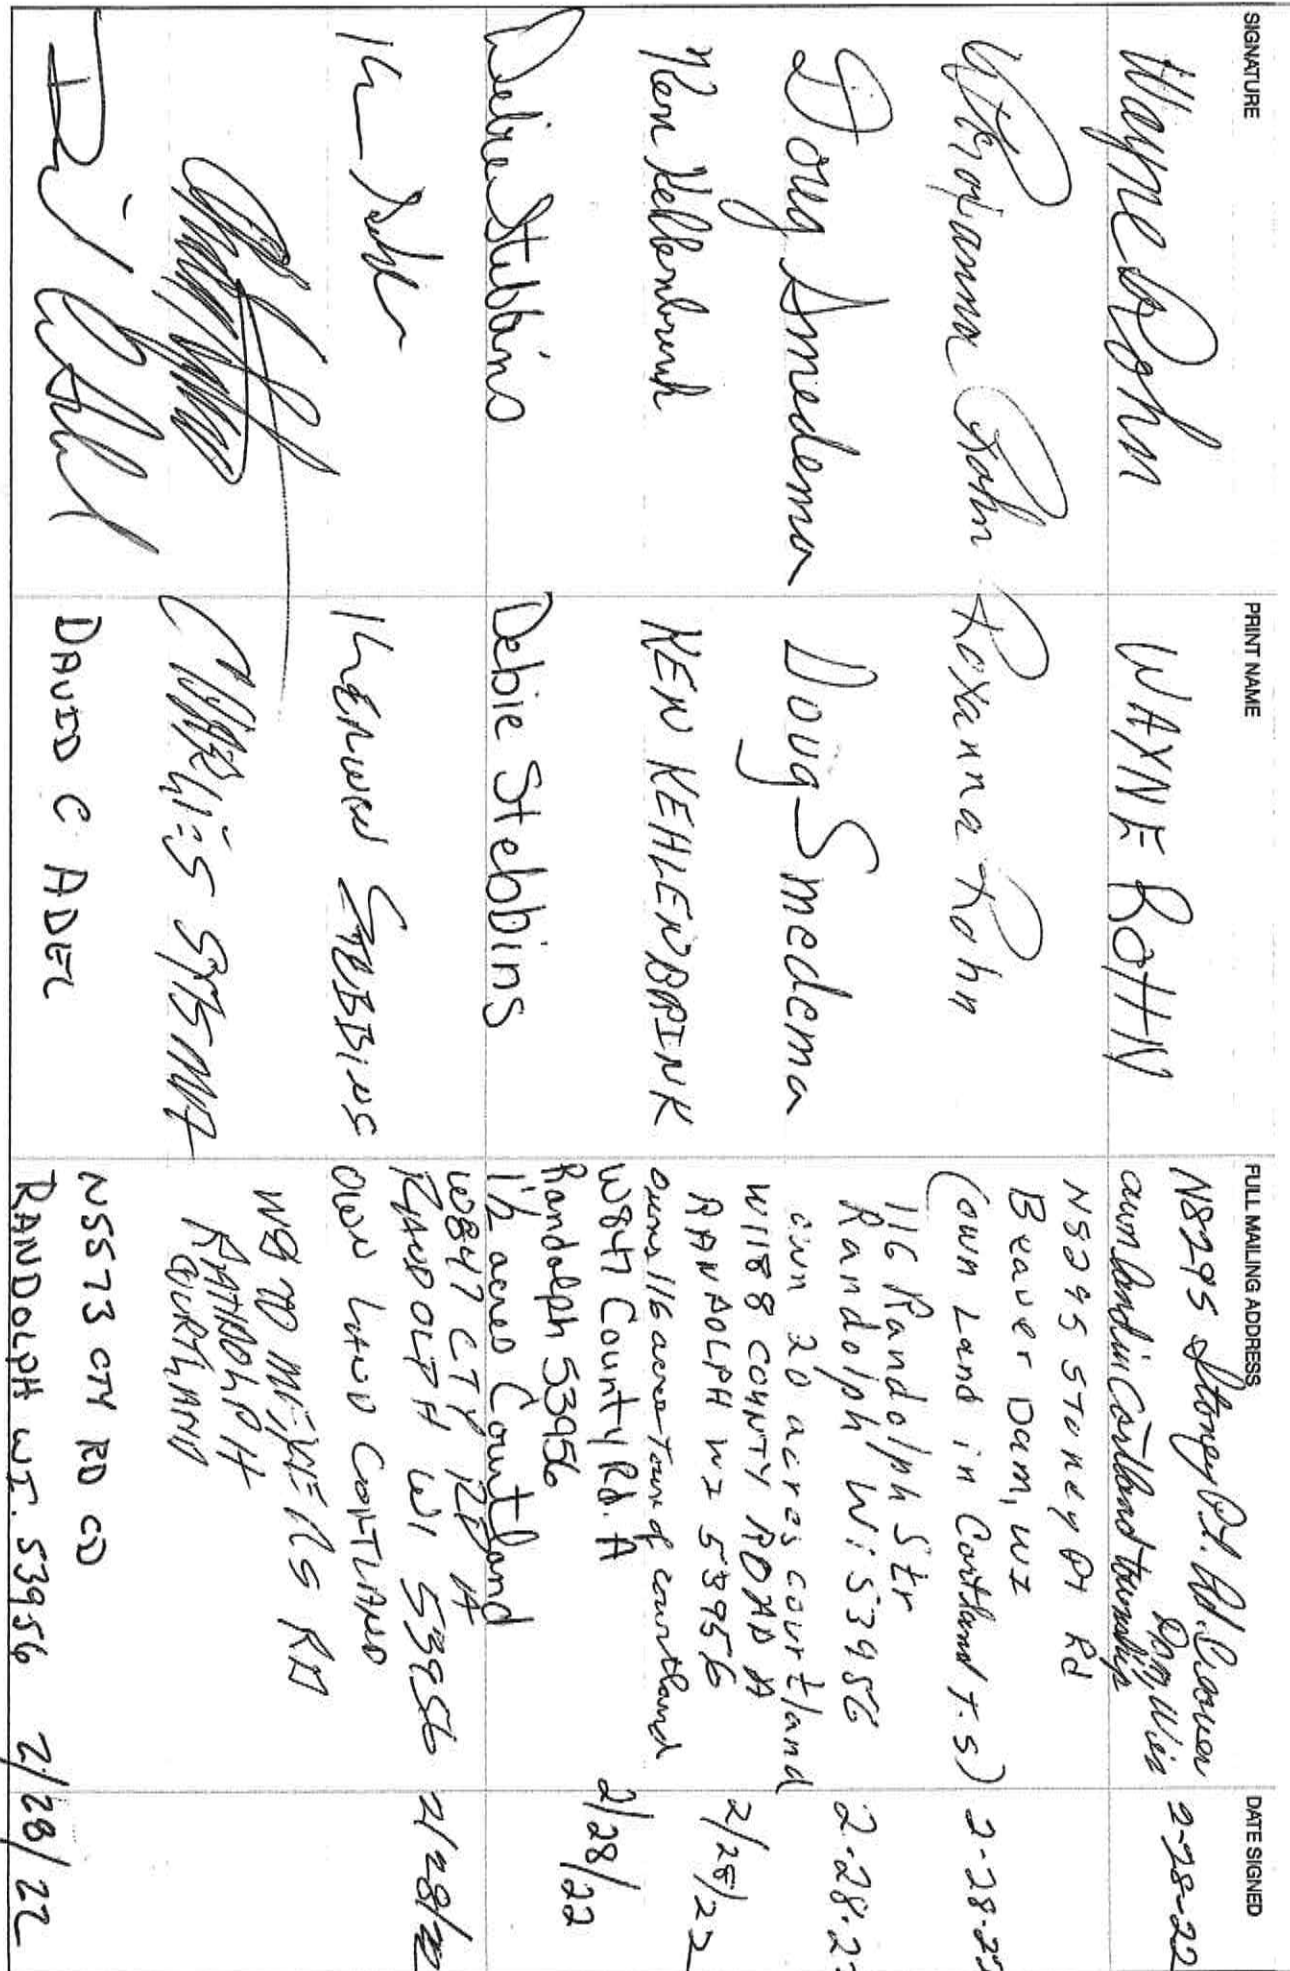 SIGNATURE PRINT NAME FULL MAILING ADDRESS DATE SIGNED
Wayne Rohn WAYNE ROHN N8295 Stoney Pt. Rd. Beaver
Dam, Wis
own land in Cortland township 2-28-22
Roxanna Rohn Roxanna Rohn N8295 Stoney Pt Rd
Beaver Dam, WI
(own Land in Cortland T.S) 2-28-22
Doug Smedema Doug Smedema 116 Randolph Str
Randolph Wi 53956
own 20 acres courtland 2-28-2
Ken Kehlenbrink KEN KEHLENBRINK W1188 COUNTY ROAD A
RANDOLPH WI 53956
owns 116 acres Town of courtland 2/28/22
Debie Stebbins Debie Stebbins W847 County Rd. A
Randolph 53956
1 1/2 acres Courtland 2/28/22
KERWIN STEBBINS W847 CTY RD A
RANDOLPH WI 53956
OWN LAND CORTLAND 2/28/22
CHARLES SYTSMA RD
RANDOLPH
COURTLAND
DAVID C ADEL N5573 CTY RD CD
RANDOLPH WI. 53956 2/28/22